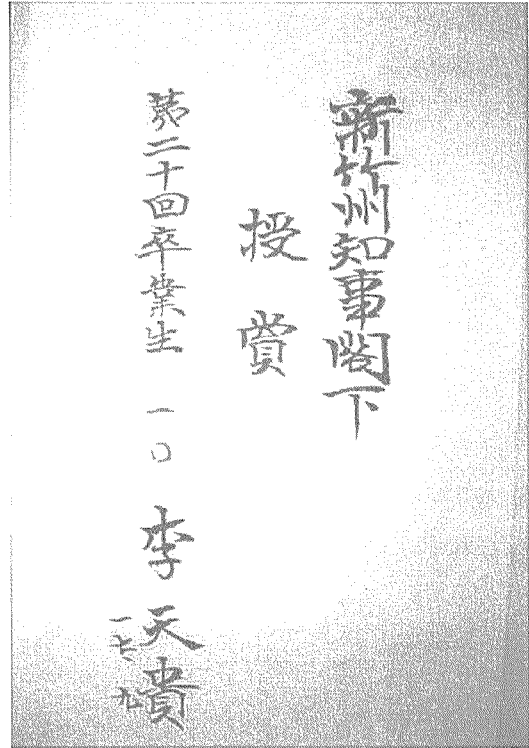 新竹州知事閣下
授賞
第二十回卒業生 一〇 李天貴
一七、九